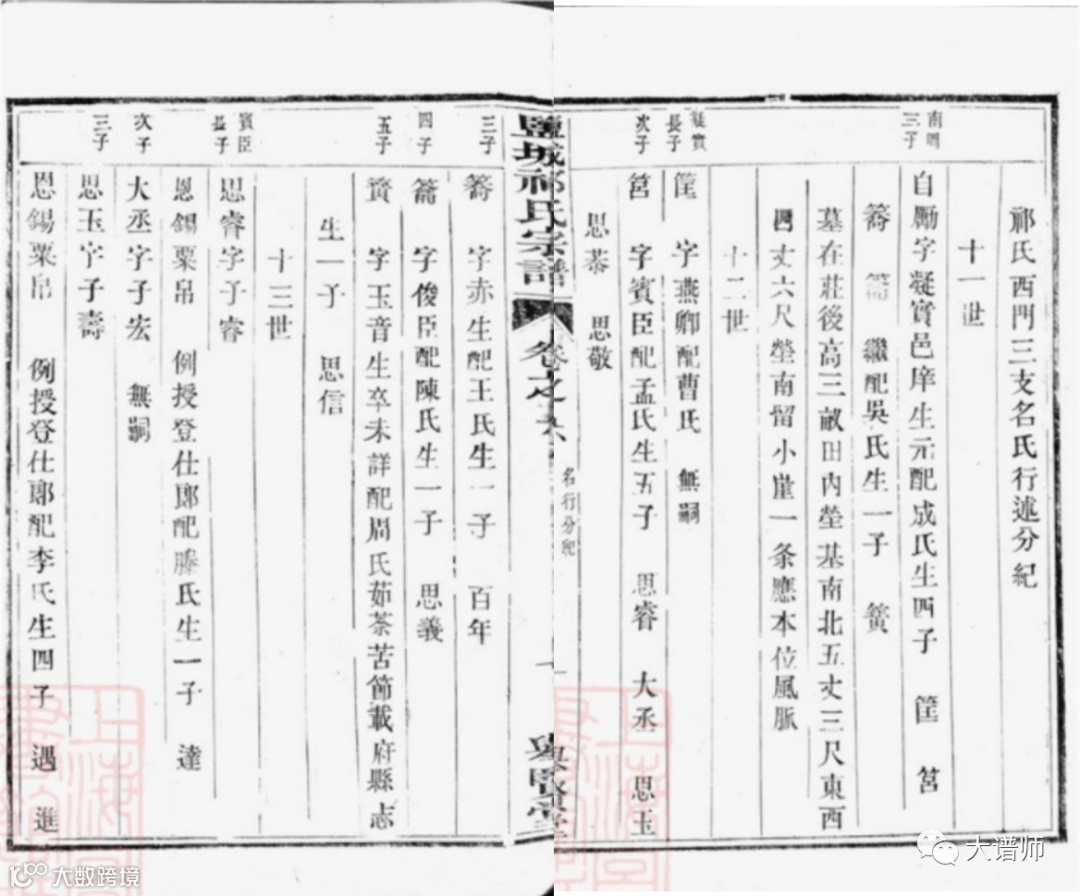 祁氏西門三支名氏行述分紀
十一世
三子
自勵字凝實邑庠生元配成氏生四子 筐 筥
簥 籥 繼配吳氏生一子 簧
墓在莊後高三畝田內塋基南北五丈三尺東西
四丈六尺塋南留小崖一条應本位風脈
十二世
凝實
長子
筐 字燕卿配曹氏 無嗣
次子
筥 字賓臣配孟氏生五子 思睿 大丞 思玉
思恭 思敬
鹽城祁氏宗譜
卷之
名行分紀
一
三子
簥 字赤生配王氏生一子 百年
四子
籥 字俊臣配陳氏生一子 思義
五子
簧 字玉音生卒未詳配周氏茹荼苦節載府縣志
生一子 思信
十三世
賓臣
長子
思睿字子睿
恩錫粟帛 例授登仕郎配滕氏生一子 達
次子
大丞字子宏 無嗣
三子
思玉字子壽
恩錫粟帛 例授登仕郎配李氏生四子 遇 進
大数跨境
大谱师